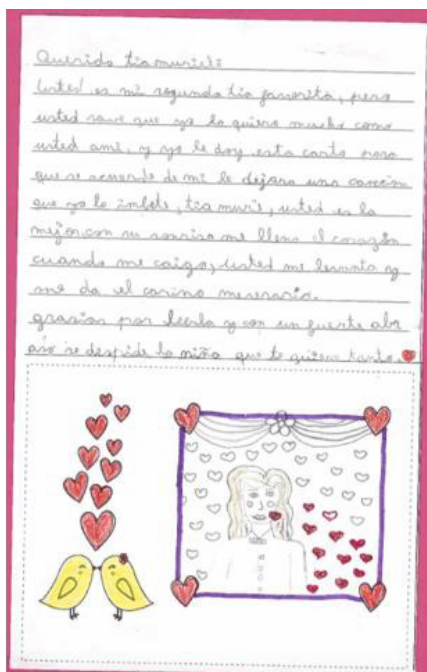 Querida tia murieli:
Usted es mi segunda tia favorita, pero
usted save que yo la quiero mucho como
usted ami, y yo le doy esta carta para
que se acuerde de mi le dejara una cancion
que yo la infete, tia muri, usted es la
mejor, con su sonrisa me llena el corazón
cuando me caigo, usted me levanta y
me da el carino meserario.
grasias por leerla y con un fuerte abr
aso se despide la niña que te quiere tanto.